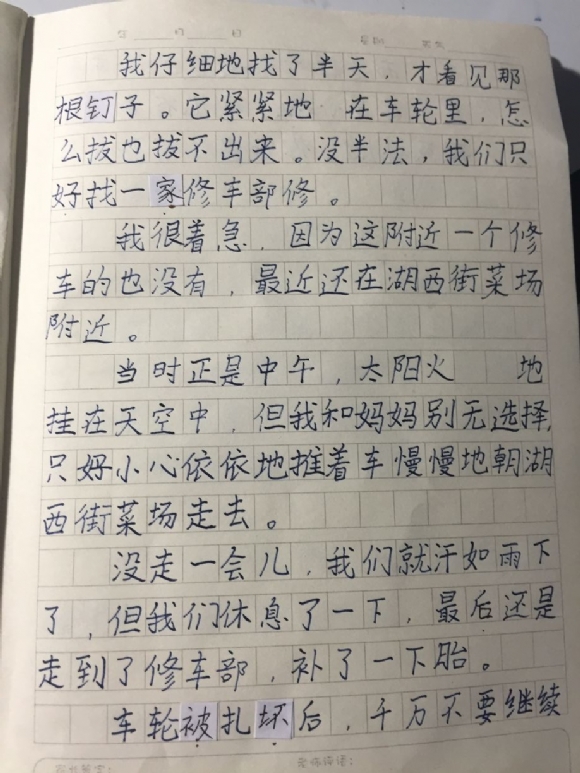 我仔细地找了半天，才看见那
根钉子。它紧紧地 在车轮里，怎
么拔也拔不出来。没半法，我们只
好找一家修车部修。
我很着急，因为这附近一个修
车的也没有，最近还在湖西街菜场
附近。
当时正是中午，太阳火 地
挂在天空中，但我和妈妈别无选择，
只好小心依依地推着车慢慢地朝湖
西街菜场走去。
没走一会儿，我们就汗如雨下
了，但我们休息了一下，最后还是
走到了修车部，补了一下胎。
车轮被扎坏后，千万不要继续